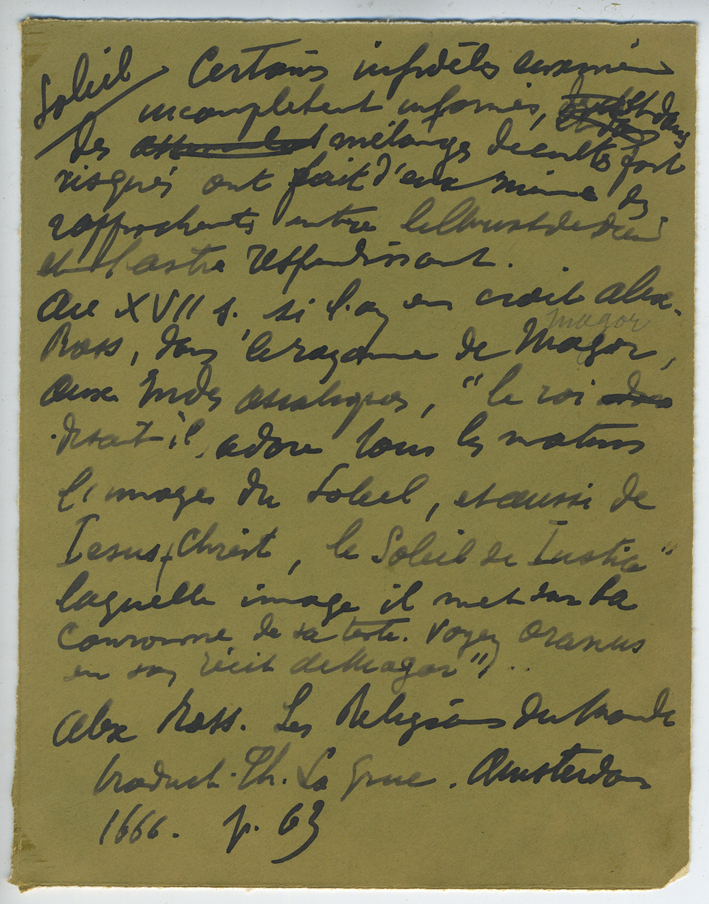 Soleil Certains infidèles eux-mêmes
incomplètent informés, dans
des mélanges de cultes fort
risqués ont fait d'eux même des
rapprochents entre le Christ de dieu
et l'astre resplendissant.
Au XVII s. si l'on en croit Alex.
Ross, dans le royaume de Magor,
magor
aux Indes asiatiques, "le roi
disait il, adore tous les matins
l'images du Soleil, et aussi de
Iesus-Christ, le Soleil de Iustice"
laquelle image il met sur la
couronne de sa teste. Voyez Oranus
en son récit de Magor")..
Alex Ross. Les Religions du Monde
traduct. Th. La Grue. Amsterdam
1666. p. 63